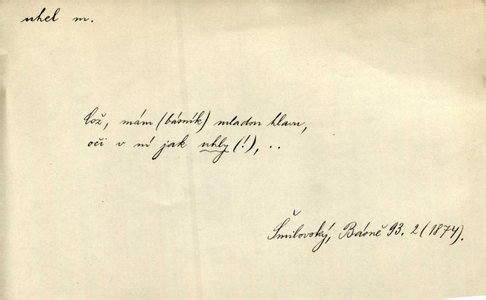 uhel m.
Což, mám (básník) mladou hlavu,
oči v ní jak uhly (!), . .
Šmilovský, Básně 93. 2 (1874).